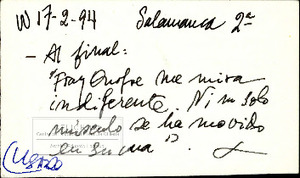 W 17-2-94 Salamanca 2ª
- Al final:
"Fray Onofre me mira
indiferente. Ni un solo
músculo se ha movido
en su cara".